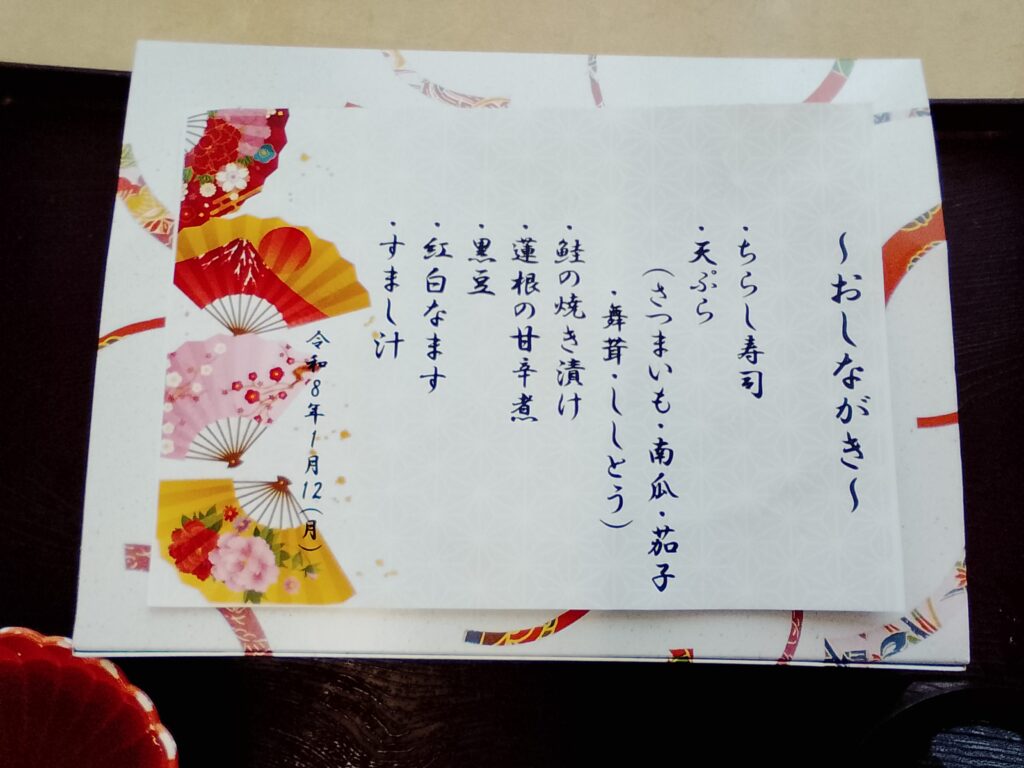 ～おしながき～
・ちらし寿司
・天ぷら
（さつまいも・南瓜・茄子
・舞茸・ししとう）
・鮭の焼き漬け
・蓮根の甘辛煮
・黒豆
・紅白なます
・すまし汁
令和8年1月12（月）